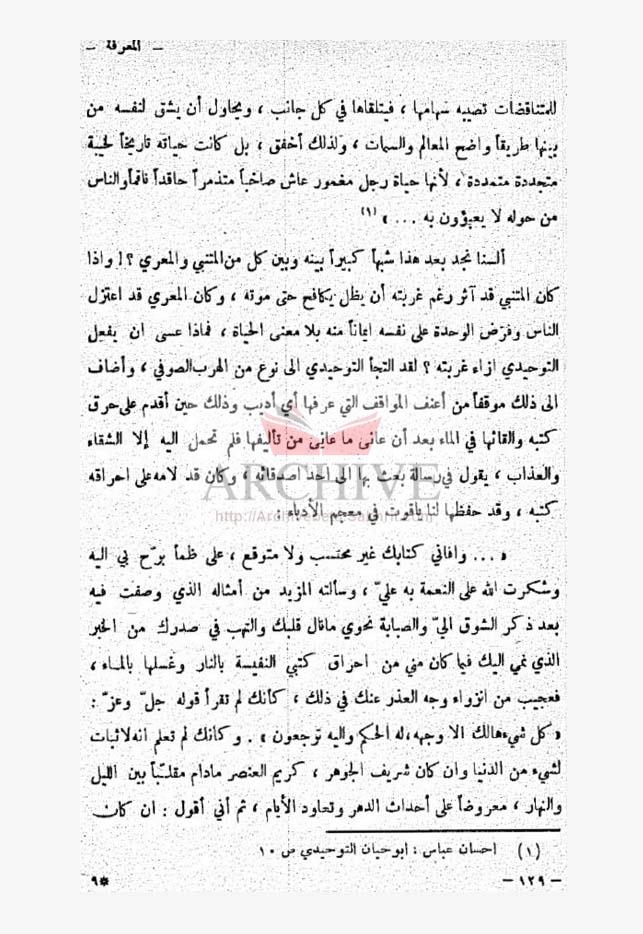 — المعرفة —
للمتناقضات تصيبه سهامها ، فيتلقاها في كل جانب ، ويحاول أن يشق لنفسه من
بينها طريقاً واضح المعالم والسمات ، ولذلك أخفق ، بل كانت حياته تاريخاً لخيبة
متجددة متمددة ، لأنها حياة رجل مغمور عاش صاخباً متذمراً حاقداً ناقماً والناس
من حوله لا يعبؤون به ... » (١)
ألسنا نجد بعد هذا شبهاً كبيراً بينه وبين كل من المتنبي والمعري ؟! واذا
كان المتنبي قد آثر رغم غربته أن يظل يكافح حتى موته ، وكان المعري قد اعتزل
الناس وفرض الوحدة على نفسه ايماناً منه بلا معنى الحياة ، فماذا عسى ان يفعل
التوحيدي ازاء غربته ؟ لقد التجأ التوحيدي الى نوع من الهرب الصوفي ، وأضاف
الى ذلك موقفاً من أعنف المواقف التي عرفها أي أديب وذلك حين أقدم على حرق
كتبه والقائها في الماء بعد أن عانى ما عانى من تأليفها فلم تحمل اليه إلا الشقاء
والعذاب ، يقول في رسالة بعث بها الى احد اصدقائه ، وكان قد لامه على احراقه
ARCHIVE
كتبه ، وقد حفظها لنا ياقوت في معجم الأدباء :
http://Archivebeta.Sakhrit.com
« ... وافاني كتابك غير محتسب ولا متوقع ، على ظمأ برّح بي اليه
وشكرت الله على النعمة به عليّ ، وسألته المزيد من أمثاله الذي وصفت فيه
بعد ذكر الشوق اليّ والصبابة نحوي مانال قلبك والتهب في صدرك من الخبر
الذي نمي اليك فيما كان مني من احراق كتبي النفيسة بالنار وغسلها بالماء ،
فعجبب من انزواء وجه العذر عنك في ذلك ، كأنك لم تقرأ قوله جلّ وعزّ :
« كل شيء هالك الا وجهه ، له الحكم واليه ترجعون » . وكأنك لم تعلم انه لاثبات
لشيء من الدنيا وان كان شريف الجوهر ، كريم العنصر مادام مقلّباً بين الليل
والنهار ، معروضاً على أحداث الدهر وتعاود الأيام ، ثم أني أقول : ان كان
(١) احسان عباس : ابوحيان التوحيدي ص ١٠
— ١٢٩ —
٩*